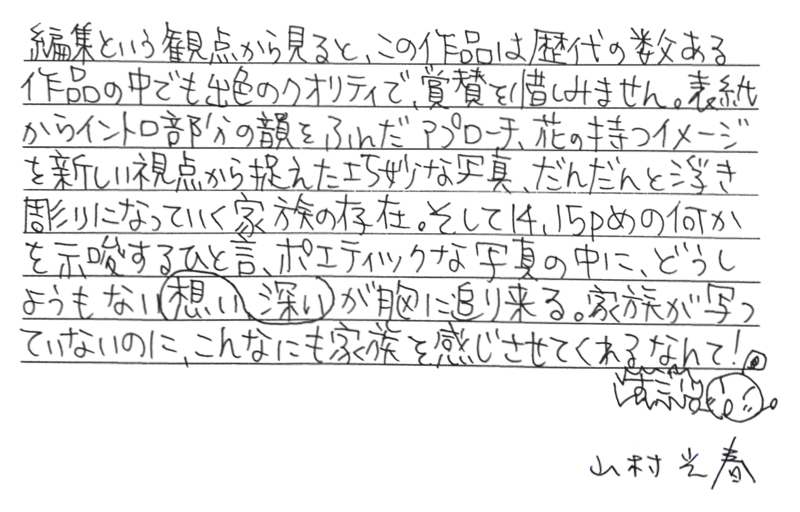 編集という観点から見ると、この作品は歴代の数ある
作品の中でも出色のクオリティで、賞賛を惜しみません。表紙
からイントロ部分の韻をふんだアプローチ、花の持つイメージ
を新しい視点から捉えた巧妙な写真、だんだんと浮き
彫りになっていく家族の存在。そして14,15pめの何か
を示唆するひと言、ポエティックな写真の中に、どうし
ようもない想い、深いが胸に迫り来る。家族が写っ
ていないのに、こんなにも家族を感じさせてくれるなんて!
山村光春